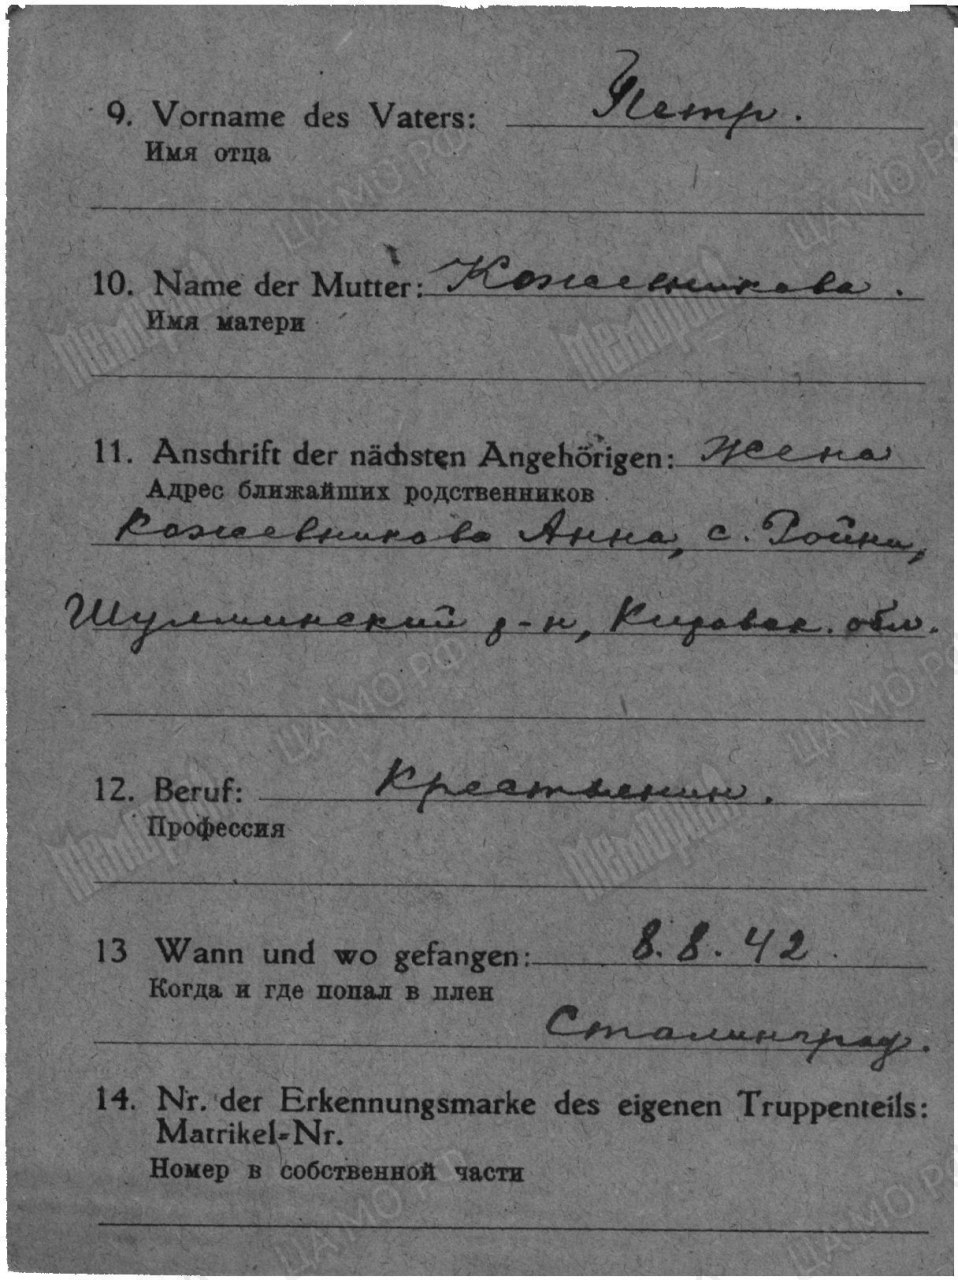 9. Vorname des Vaters: Петр.
Имя отца
10. Name der Mutter: Кожевникова.
Имя матери
11. Anschrift der nächsten Angehörigen: Жена
Адрес ближайших родственников
Кожевникова Анна, с. Ройки,
Шулминский р-н, Кировск. обл.
12. Beruf: Крестьенин.
Профессия
13 Wann und wo gefangen: 8.8.42
Когда и где попал в плен
Сталинград.
14. Nr. der Erkennungsmarke des eigenen Truppenteils:
Matrikel-Nr.
Номер в собственной части
ЦА МО РФ
Мемориал